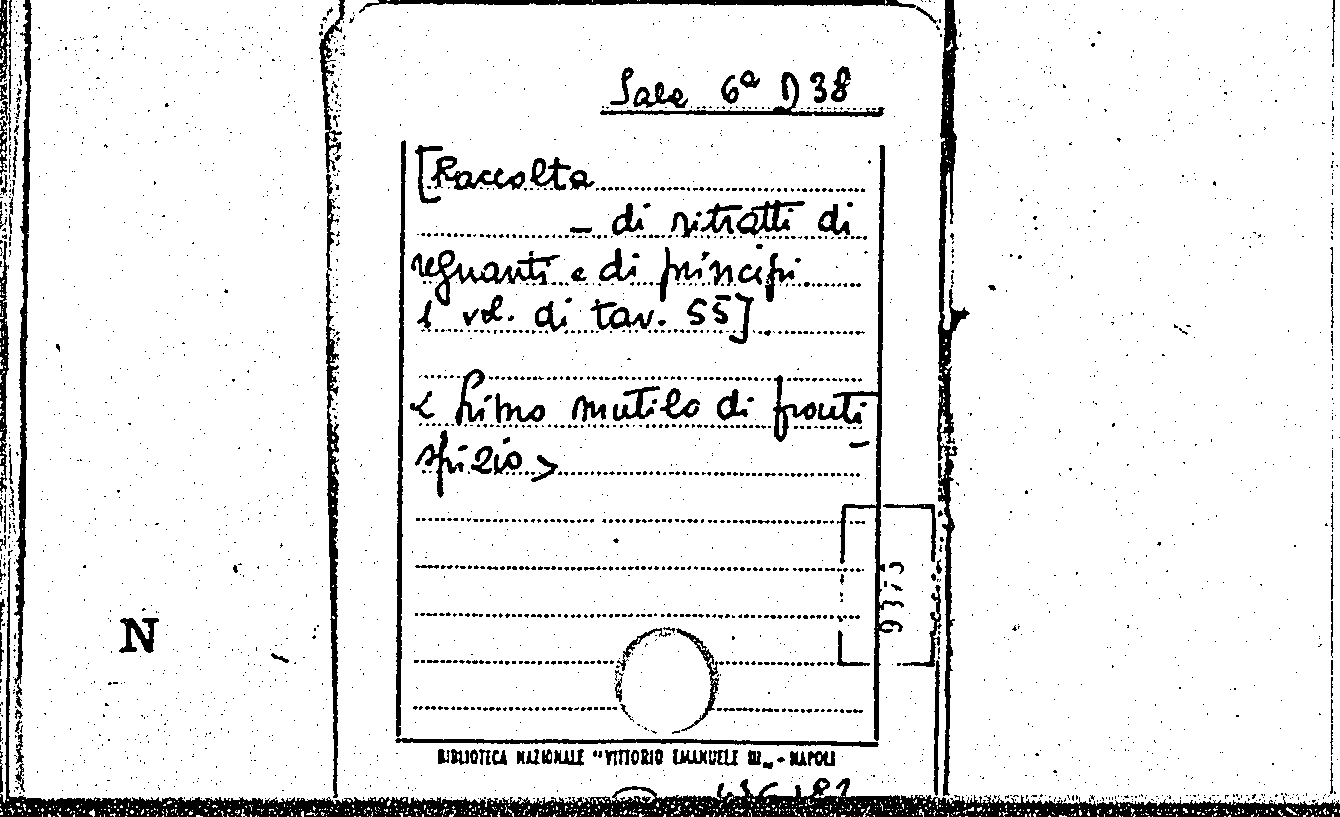 Sala 6ª D 38
[Raccolta
- di ritratti di
regnanti e di principi.
1 vol. di tav. 55].
< Primo mutilo di fronti
spizio >
9373
N
BIBLIOTECA NAZIONALE "VITTORIO EMANUELE III„ - NAPOLI